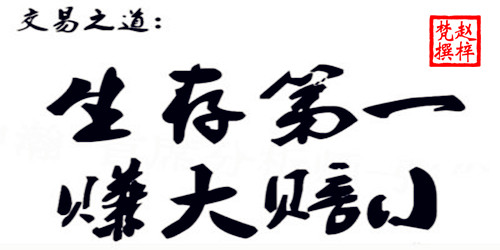 交易之道：
赵梓
梵撰
生存第一
赚大赔小